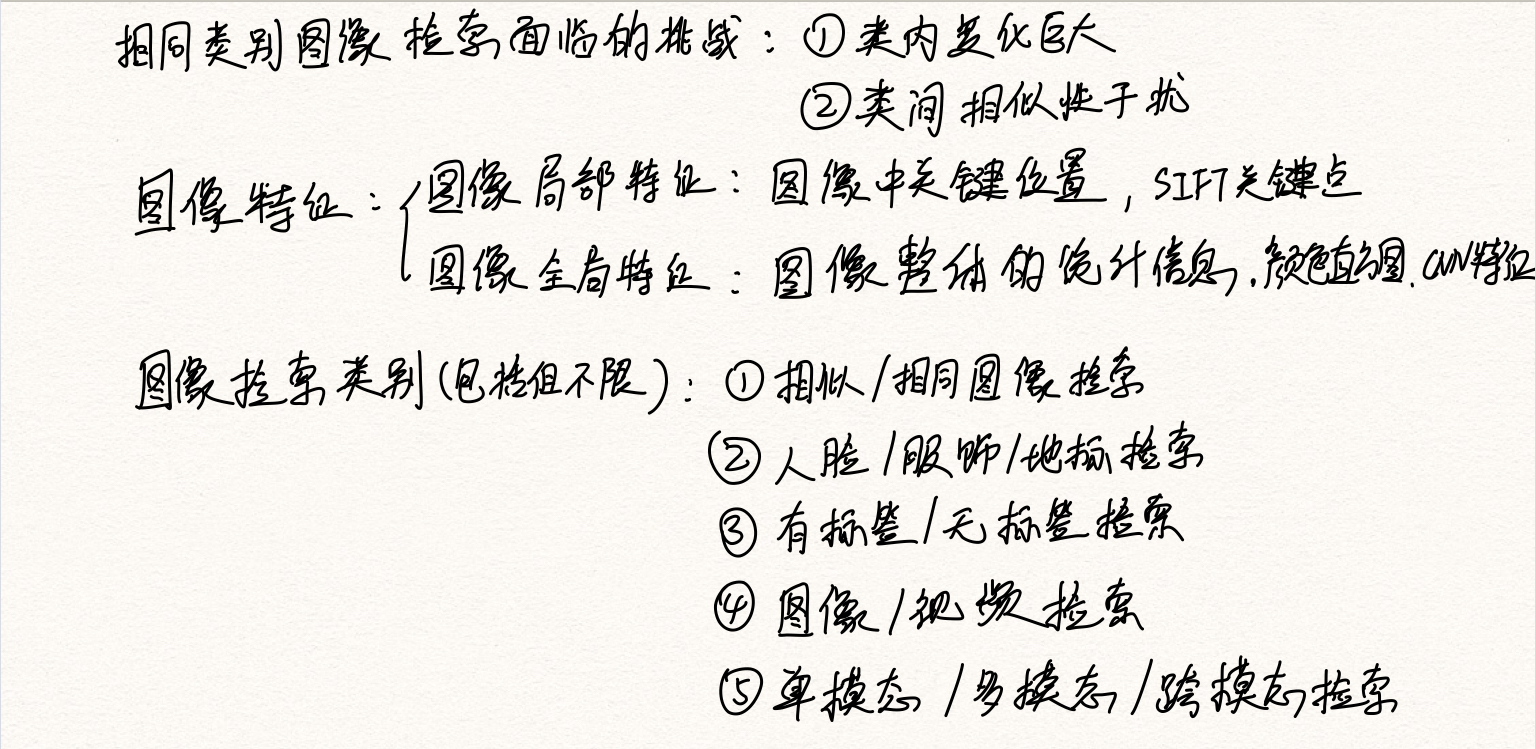 相同类别图像检索面临的挑战：①类内变化巨大
②类间相似性干扰
图像特征：{图像局部特征：图像中关键位置，SIFT关键点
图像全局特征：图像整体的统计信息，颜色直方图，CNN特征
图像检索类别(包括但不限)：①相似/相同图像检索
②人脸/服饰/地标检索
③有标签/无标签检索
④图像/视频检索
⑤单模态/多模态/跨模态检索